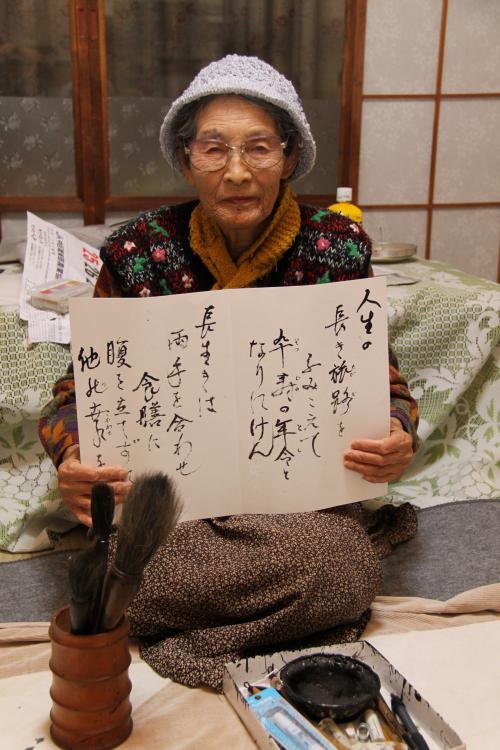 人生の
長き旅路を
ふみこえて
卒寿の年令と
なりにけん
長生きは
両手を合わせ
食膳に
腹を立てず
他の幸を